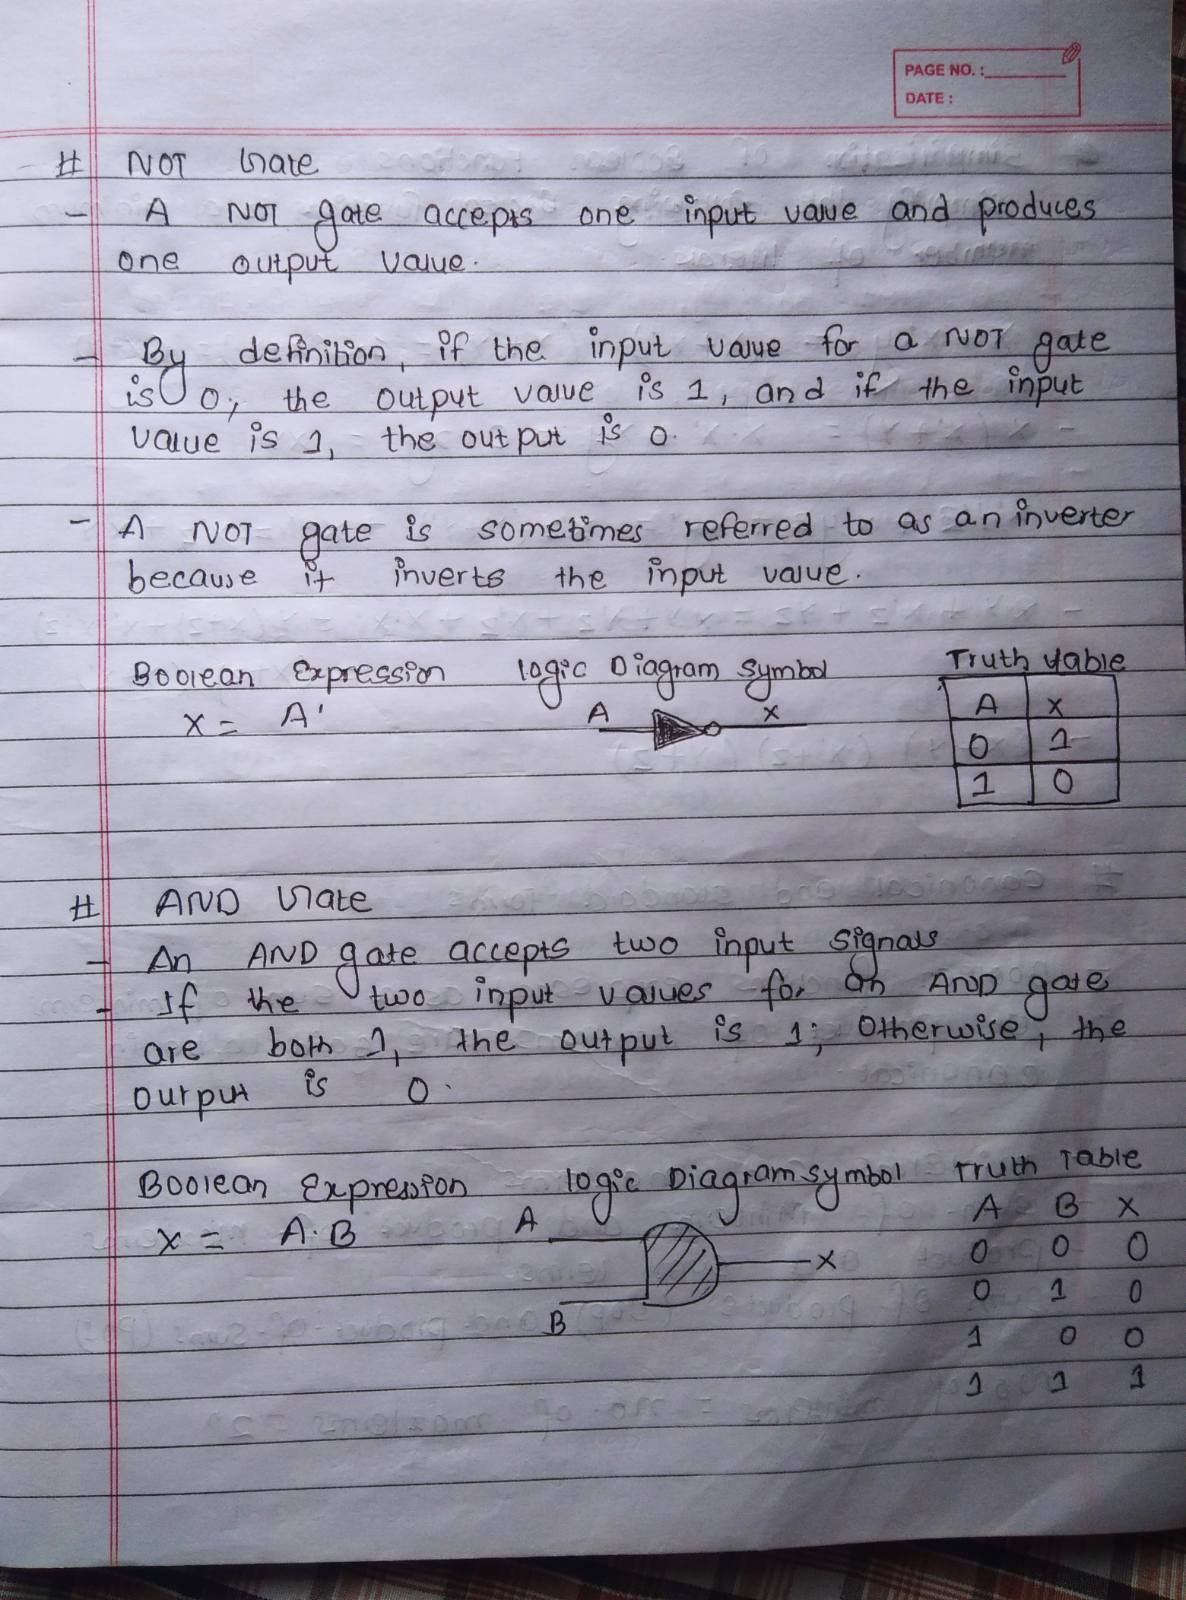 PAGE NO. :
DATE :
# NOT Gate
- A NOT gate accepts one input value and produces
one output value.
- By definition, if the input value for a NOT gate
is 0, the output value is 1, and if the input
value is 1, the output is 0.
- A NOT gate is sometimes referred to as an inverter
because it inverts the input value.
Boolean Expression logic Diagram symbol Truth table
X = A' A X
A X
0 1
1 0
# AND Gate
- An AND gate accepts two input signals
- If the two input values for an AND gate
are both 1, the output is 1; otherwise, the
output is 0.
Boolean Expression logic Diagram symbol Truth Table
X = A.B A X B
A B X
0 0 0
0 1 0
1 0 0
1 1 1